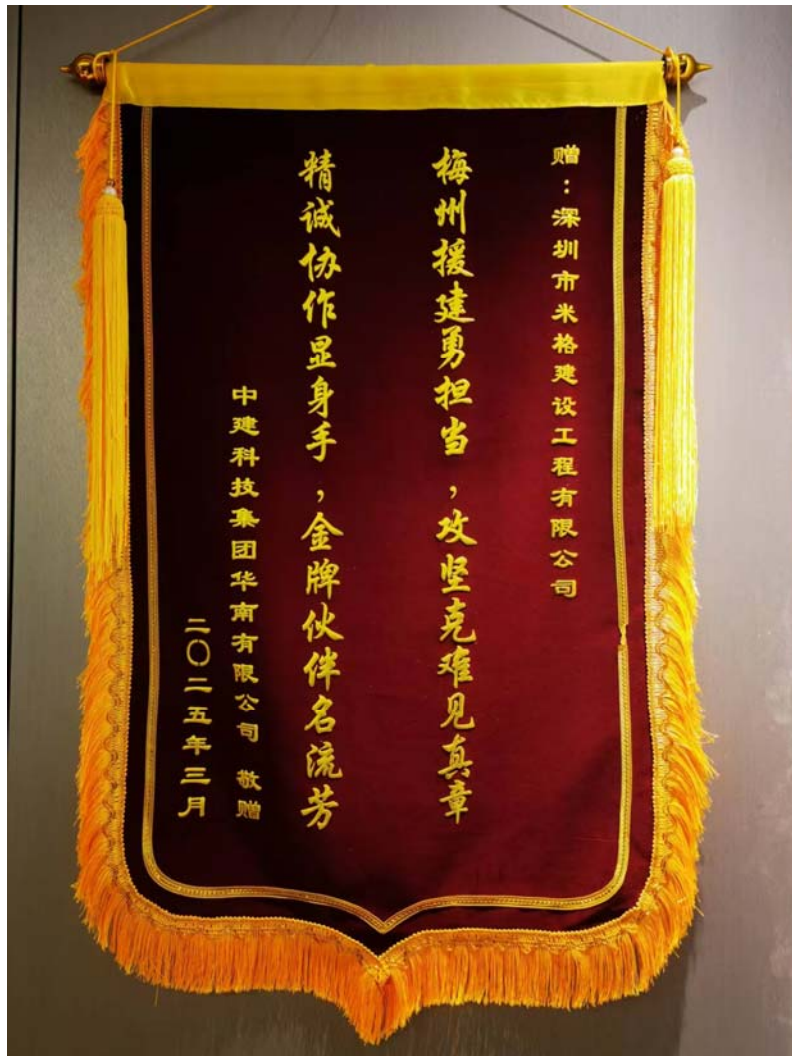 赠：深圳市米格建设工程有限公司
梅州援建勇担当，攻坚克难见真章
精诚协作显身手，金牌伙伴名流芳
中建科技集团华南有限公司 敬赠
二〇二五年三月